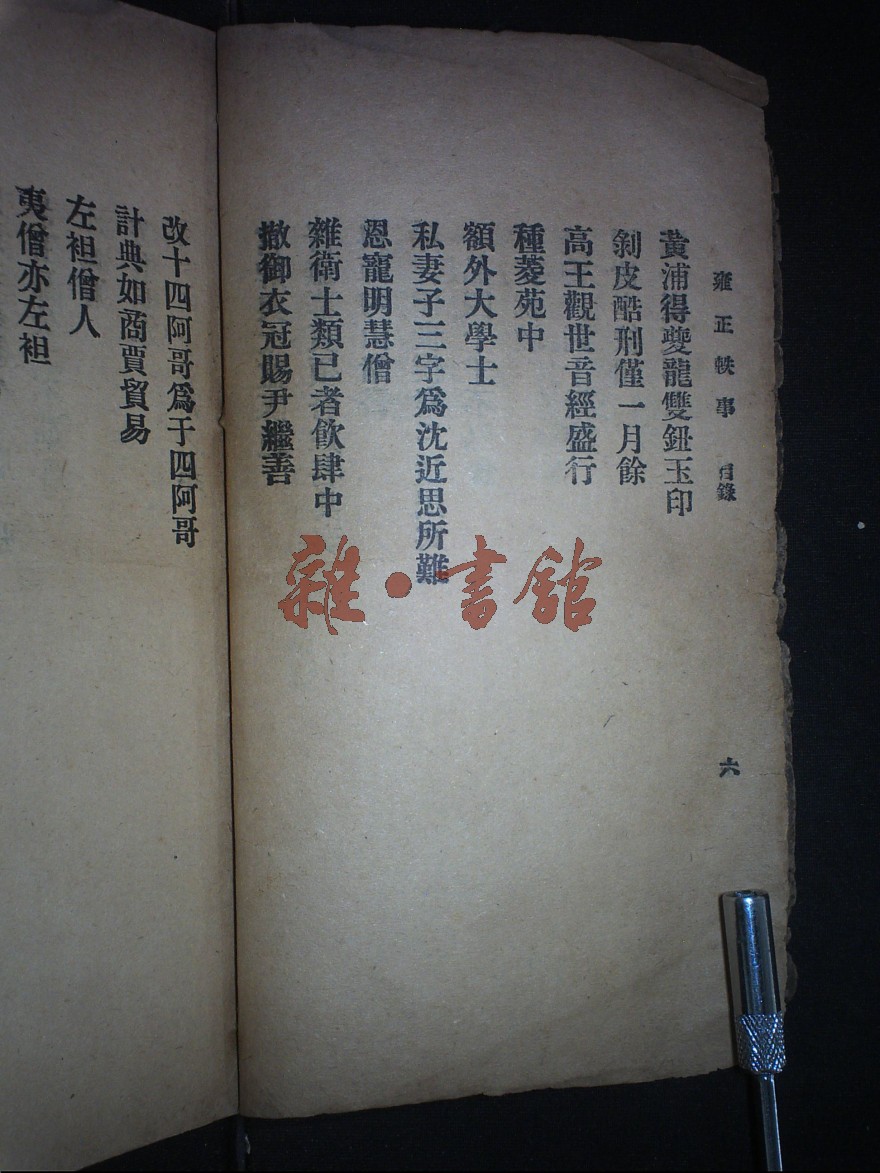 雍正軼事 目錄 六
黃浦得夔龍雙鈕玉印
剝皮酷刑僅一月餘
高王觀世音經盛行
種菱苑中
額外大學士
私妻子三字爲沈近思所難
恩寵明慧僧
雜衛士類已者飮肆中
撤御衣冠賜尹繼善
改十四阿哥爲于四阿哥
計典如商賈貿易
左袒僧人
夷僧亦左袒
雜·書館